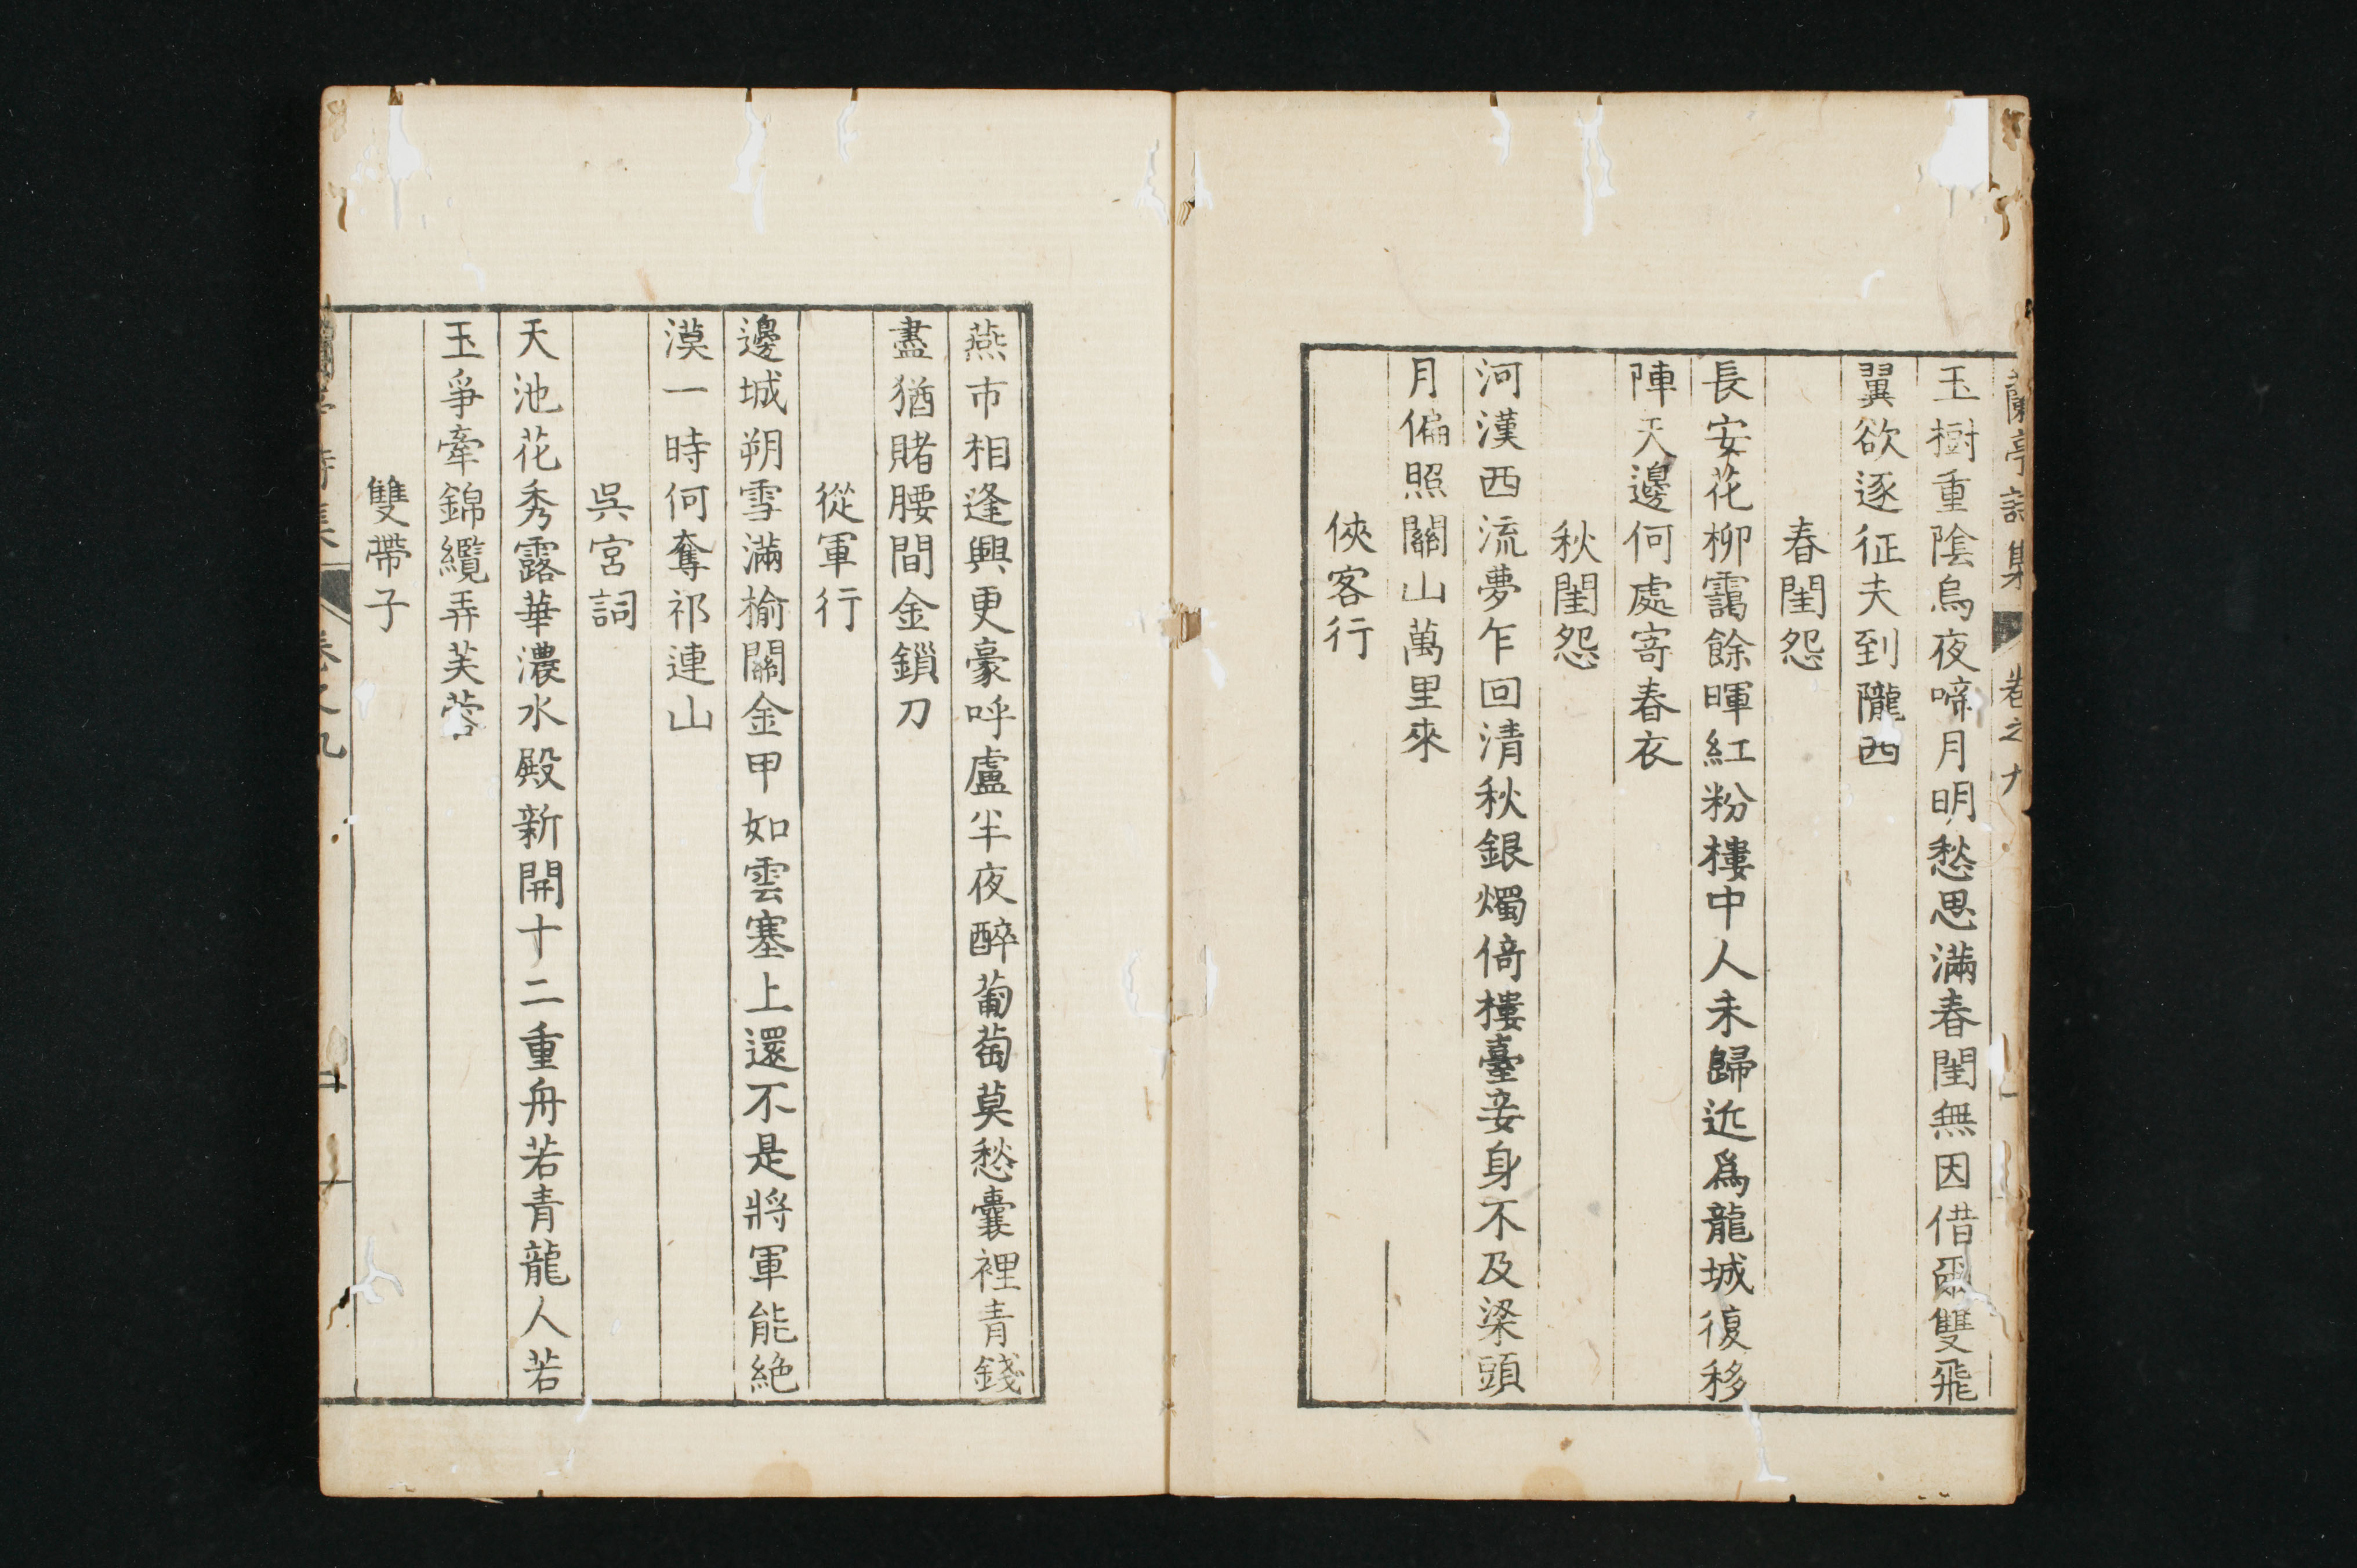 蘭亭詩集 卷之九
玉樹重陰烏夜啼月明愁思滿春閨無因借爾雙飛
翼欲逐征夫到隴西
春閨怨
長安花柳靄餘暉紅粉樓中人未歸近爲龍城復移
陣天邊何處寄春衣
秋閨怨
河漢西流夢乍回清秋銀燭倚樓臺妾身不及梁頭
月偏照關山萬里來
俠客行
燕市相逢興更豪呼盧半夜醉葡萄莫愁囊裡青錢
盡猶賭腰間金鎖刀
從軍行
邊城朔雪滿榆關金甲如雲塞上還不是將軍能絶
漠一時何奪祁連山
吳宮詞
天池花秀露華濃水殿新開十二重舟若青龍人若
玉爭牽錦纜弄芙蓉
雙帶子